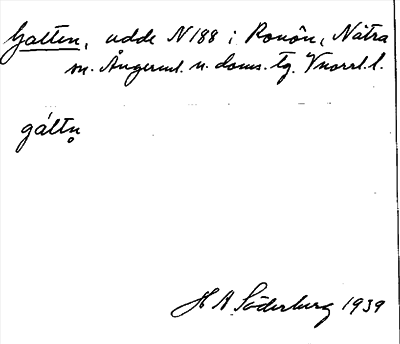 Galten, udde N 188 i Ronön, Nätra
sn. Ångerml. n. doms. tg. Vnorrl. l.
gáltn̥
H A Söderberg 1939